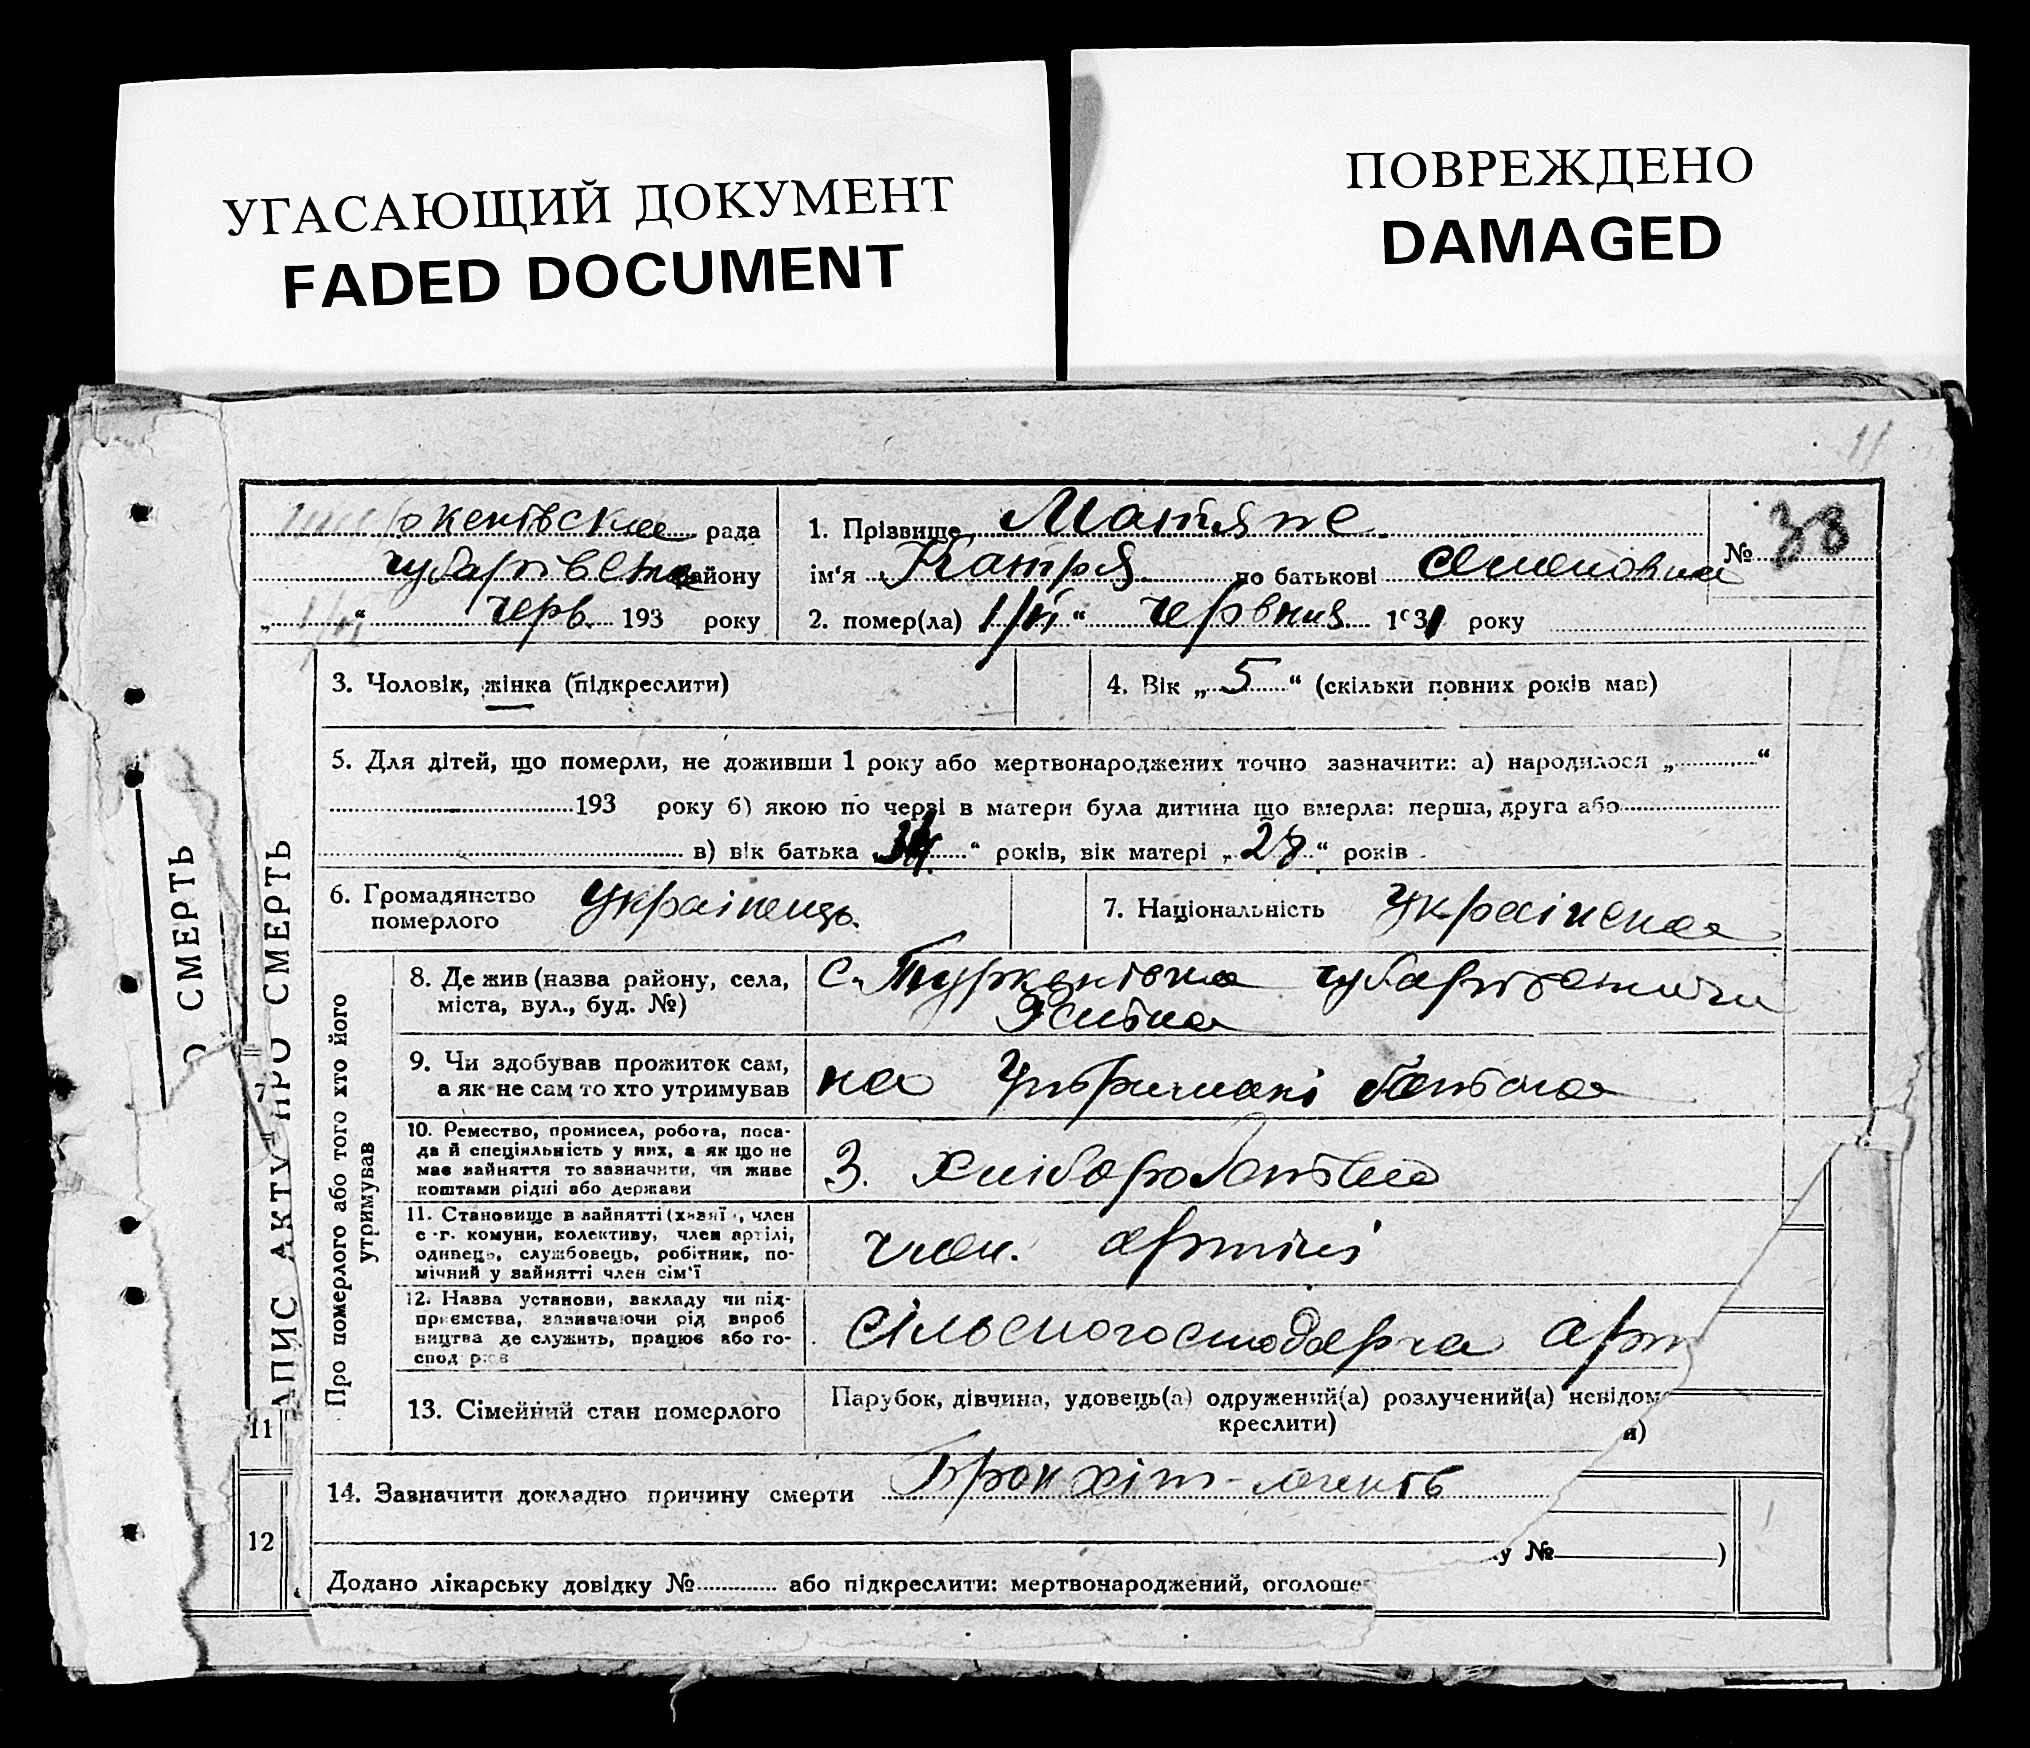 УГАСАЮЩИЙ ДОКУМЕНТ
FADED DOCUMENT
ПОВРЕЖДЕНО
DAMAGED
11
рада
району
„ 1/VI “ черв. 193 року
1. Прізвище Матяше
№ 38
ім'я Катря по батькові
2. помер(ла) 1/VI “ червня 1931 року
3. Чоловік, жінка (підкреслити)
4. Вік „ 5 “ (скільки повних років мав)
5. Для дітей, що померли, не доживши 1 року або мертвонароджених точно зазначити: а) народилося „ “
193 року б) якою по черзі в матери була дитина що вмерла: перша, друга або
в) вік батька „ “ років, вік матері „ 28 “ років
6. Громадянство
померлого
українець.
7. Національність
Українка
8. Де жив (назва району, села,
міста, вул., буд. №)
с. Туркенівка
9. Чи здобував прожиток сам,
а як не сам то хто утримував
на Утримані батька
10. Ремество, промисел, робота, поса-
да й специяльність у них, а як що не
має зайняття то зазначити, чи живе
коштами рідні або держави
З. Хліборобство
11. Становище в зайнятті , член
с-г. комуни, колективу, член артілі,
одинець, службовець, робітник, по-
мічний у зайнятті член сім'ї
член. артілі
12. Назва установи, закладу чи під-
приємства, зазначаючи рід вироб
ництва де служить, працює або го-
спод
арт
13. Сімейний стан померлого
Парубок, дівчина, удовець(а) одружений(а) розлучений(а) невідом
креслити)
и)
14. Зазначити докладно причину смерти
Бронхіт
у № )
Додано лікарську довідку № або підкреслити: мертвонароджений, оголоше
Про померлого або того хто його
утримував
АПИС АКТУ ПРО СМЕРТЬ
О СМЕРТЬ
7
11
12